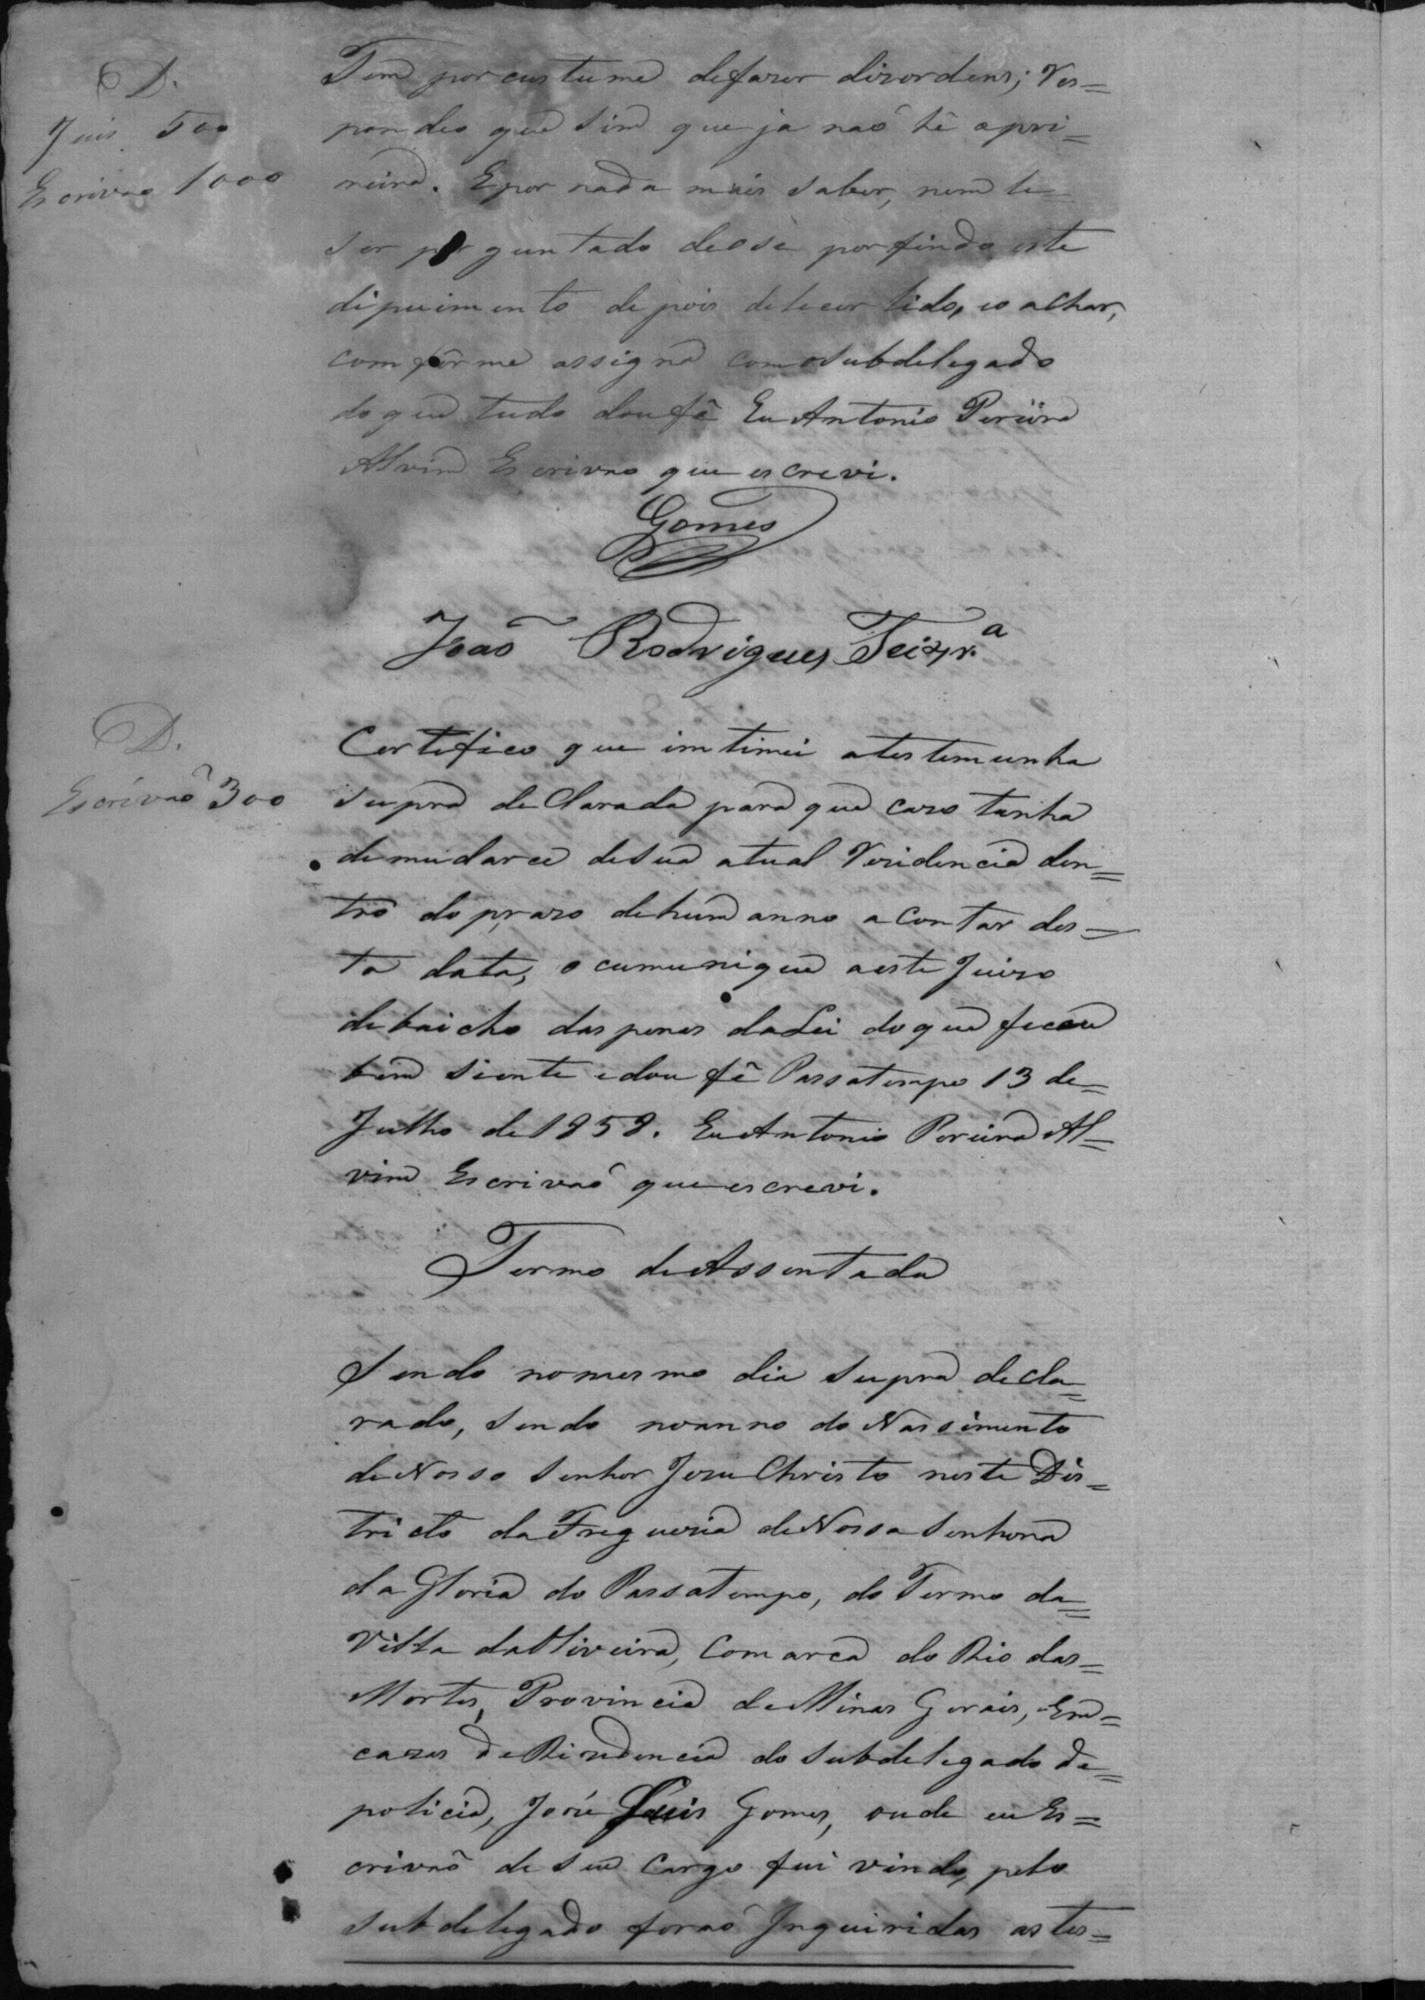 D.
Juis 500
Escrivao 1000
Tem por custume defazer dizordens; Res=
pondeo que sim que ja naõ hê apri=
meira. E por nada mais saber, nem lê=
ser perguntado deose por findo este
dipuimento depois delecer lido, eo achar,
comforme assigna com osubdelegado
do que tudo dou fê Eu Antonio Pereira
Alvim Escrivao que escrevi.
Gomes
Joaõ Rodrigues Teixr.ª
D.
Escrivaõ 300
Certefico que imtimei atestemunha
supra declarada para que cazo tenha
demudarce desua atual Rezidencia den=
tro do prazo dehum anno acontar des=
ta data, o cumunique aeste Juizo
debaicho das penas daLei do que ficou
bem siente edou fê Passatempo 13 de=
Julho de 1858. Eu Antonio Pereira Al=
vim Escrivaõ que escrevi.
Termo de Assentada
Sendo nomesmo dia supra decla=
rado, sendo noanno do Nassimento
de Nosso Senhor Jezu Christo neste Dis=
tricto da Freguezia de Nossa Senhora
da Gloria do Passatempo, do Termo da=
Villa daOliveira, Comarca do Rio das=
Mortes, Provincia de Minas Gerais, Em=
cazas de Rizidencia do subdelegado de=
policia, José Luis Gomes, onde eu Es=
crivaõ de seu cargo fui vindo, pelo
subdelegado foraõ Inquiridas astes=